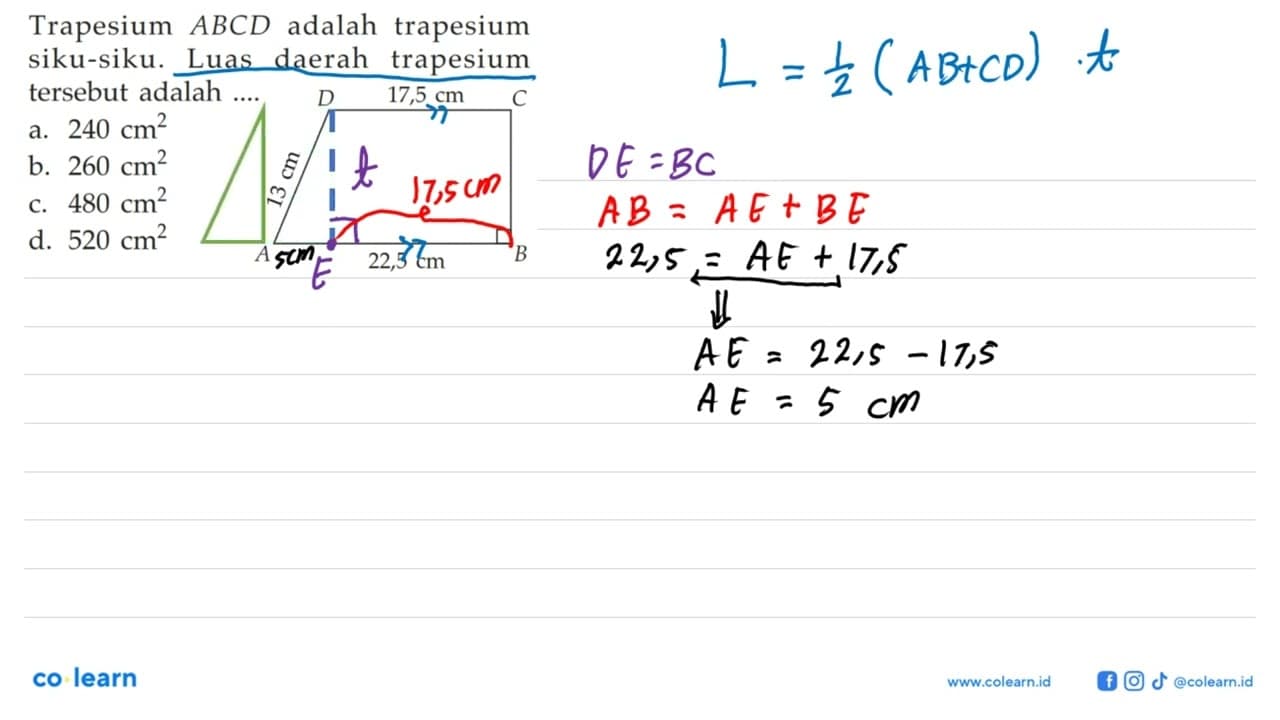 Trapesium ABCD adalah trapesium
siku-siku. Luas daerah trapesium
tersebut adalah ....
a. 240 cm²
b. 260 cm²
c. 480 cm²
d. 520 cm²
D 17,5 cm C
13 cm
t
17,5 cm
A 5cm E 22,5 cm B
L = 1/2 (AB+CD) . t
DE = BC
AB = AE + BE
22,5 = AE + 17,5
⇓
AE = 22,5 - 17,5
AE = 5 cm
co learn
www.colearn.id @colearn.id